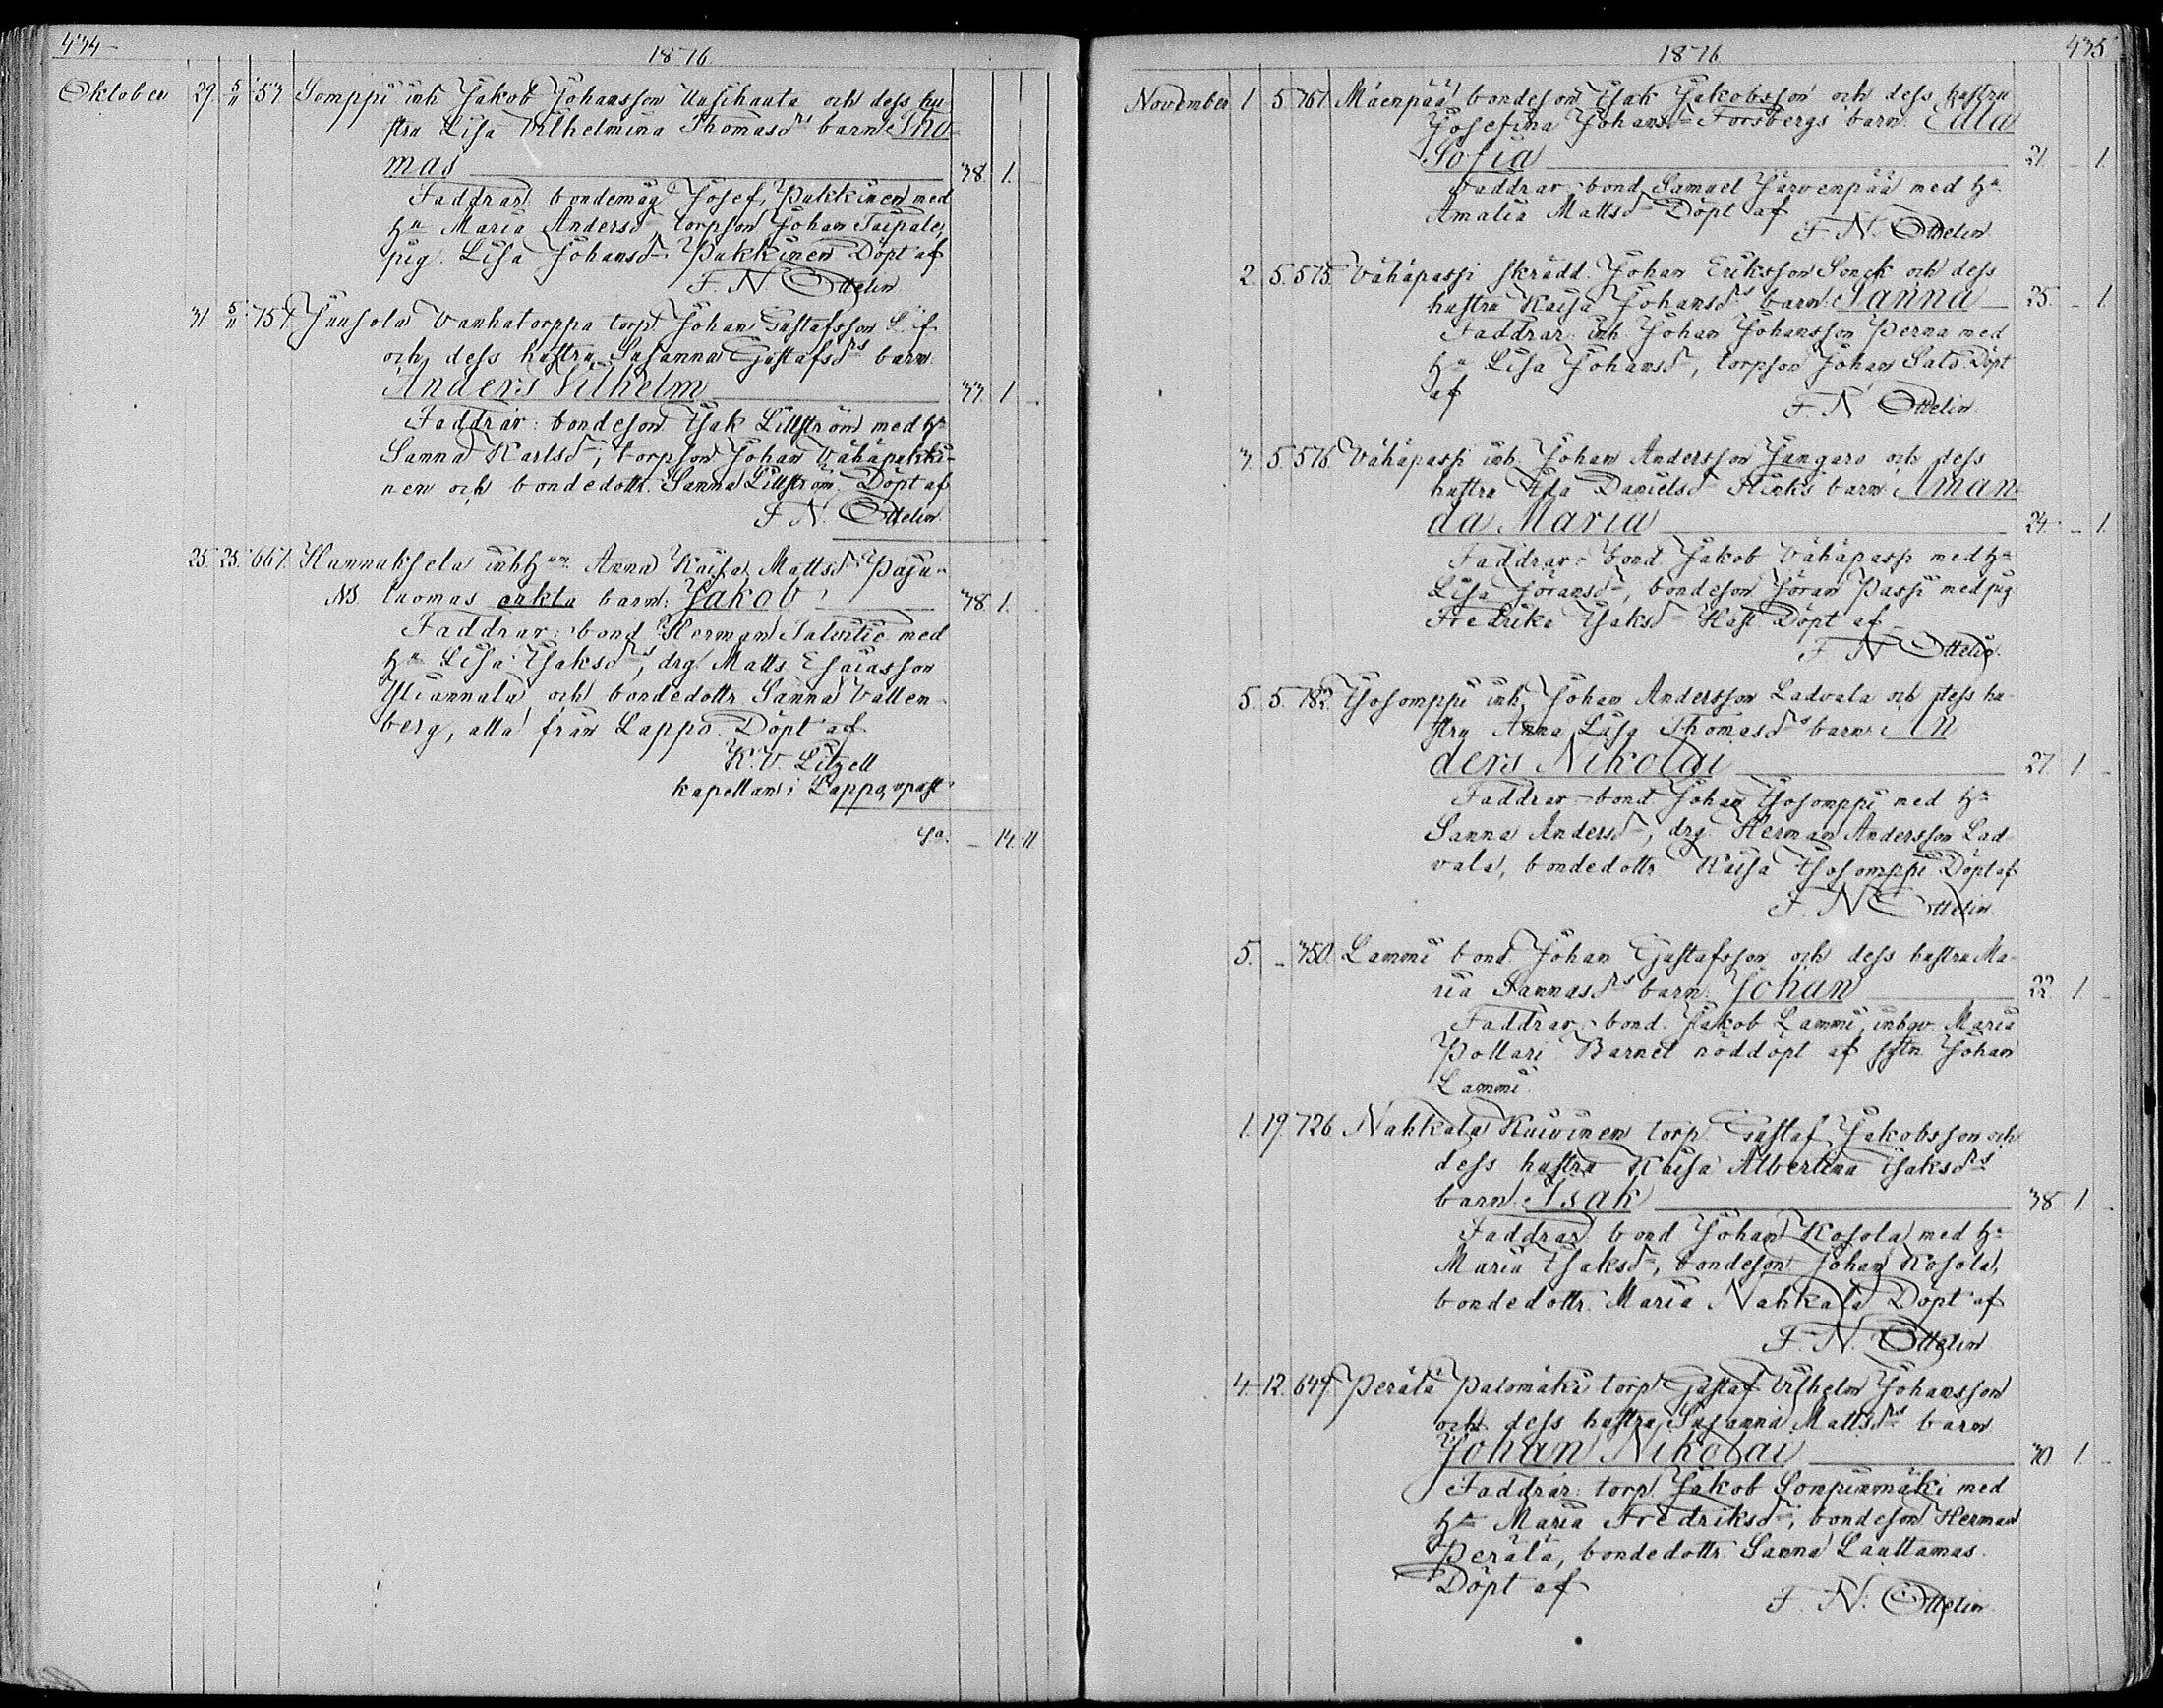 434
1876
Oktober 29. 5/11 53. Somppi inh Jakob Johansson Uusihauta och dess hu-
stru Lisa Vilhelmina Thomasdrs barn: Tho-
mas 38 1. -
Faddrar: bondemåg Josef Pakkinen med
Hu Maria Andersdr, torpson Johan Taipale,
pig. Lisa Johansdr Pakkinen Döpt af
F. N. Ottelin
31 5/11 754. Juusola Vanhatorppa torp. Johan Gustafsson
och dess hustru Susanna Gustafsdrs barn
Anders Vilhelm 33. 1 -
Faddrar: bondeson Isak Lillström med Hu
Sanna Karlsdr, torpson Johan Vähäpakki-
nen och bondedottr. Sanna Lillström Döpt af
F. N. Ottelin.
25. 25. 667. Hannuksela inhHu Anna Kaisa Mattsdr Paju-
NB. luomas oäkta barn: Jakob 38. 1.
Faddrar: bond Herman Talvitie med
Hu Lisa Isaksdr, drg. Matts Esaiasson
Yliannala och bondedottr. Sanna Vallen-
berg, alla från Lappo. Döpt af
K. V. Litzell
kapellan i Lappo, past
Sa. - 14. 11
435
1876
November 1 5. 761. Mäenpää bondeson Isak Jakobsson och dess hustru
Josefina Johansdr Forsbergs barn: Edla
Sofia 21. - 1
Faddrar: bond Samuel Järvenpää med Hu
Amalia Mattsdr Döpt af
F. N. Ottelin.
2. 5. 575. Vähäpassi skrädd. Johan Eriksson Sonck och dess
hustru Kaisa Johansdrs barn: Sanna 25. - 1.
Faddrar: inh Johan Johansson Perna med
Hu Lisa Johansdr, torpson Johan Salo. Döpt
af
F. N Ottelin
3. 5. 576. Vähäpassi inh. Johan Andersson Jungars och dess
hustru Ida Danielsdr Flinks barn: Aman-
da Maria 24. - 1.
Faddrar: bond. Jakob Vähäpassi med Hu
Lisa Göransdr, bondeson Göran Passi med pig
Fredrika Isaksdr Hast Döpt af
F N Ottelin.
5. 5. 182. Isosomppi inh. Johan Andersson Ladvala och dess hu-
stru Anna Lisa Thomasdrs barn: An
ders Nikolai 27 1 -
Faddrar: bond Johan Isosomppi med Hu
Sanna Andersdr, drg. Herman Andersson Lad-
vala, bondedottr Kaisa Isosomppi Döpt af
F. N Ottelin.
5. - 350. Lammi bond. Johan Gustafsson och dess hustru Ma-
ria Sannasdrs barn: Johan 22. 1. -
Faddrar: bond. Jakob Lammi, inhqv. Maria
Pollari Barnet nöddöpt af sytn Johan
Lammi.
1. 19. 726 Nahkala Kuivinen torp. Gustaf Jakobsson och
dess hustru Kaisa Albertina Isaksdrs
barn: Isak 38 1 -
Faddrar: bond Johan Kosola med Hu
Maria Isaksdr, bondeson Johan Kosola,
bondedottr. Maria Nahkala Döpt af
F. N. Ottelin
4. 12. 649. Perälä Palomäki torp. Gustaf Vilhelm Johansson
och dess hustru Susanna Mattsdrs barn
Johan Nikolai 30 1. -
Faddrar: torp. Jakob Sompinmäki med
Hu Maria Fredriksdr, bondeson Herman
Perälä, bondedottr. Sanna Lauttamus.
Döpt af
F. N: Ottelin.